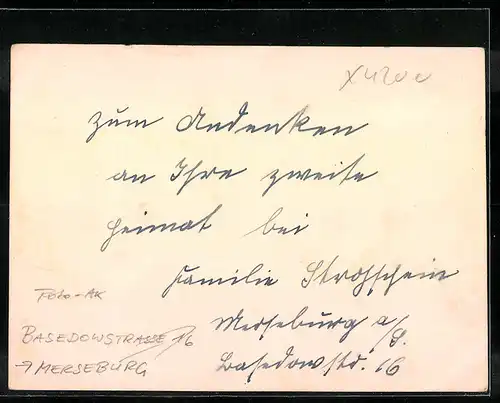 zum Andenken
an Ihre zweite
Heimat bei
Familie Strohschein
Merseburg a/S.
Basedowstr. 16
Foto-AK
BASEDOWSTRASSE 16
→ MERSEBURG